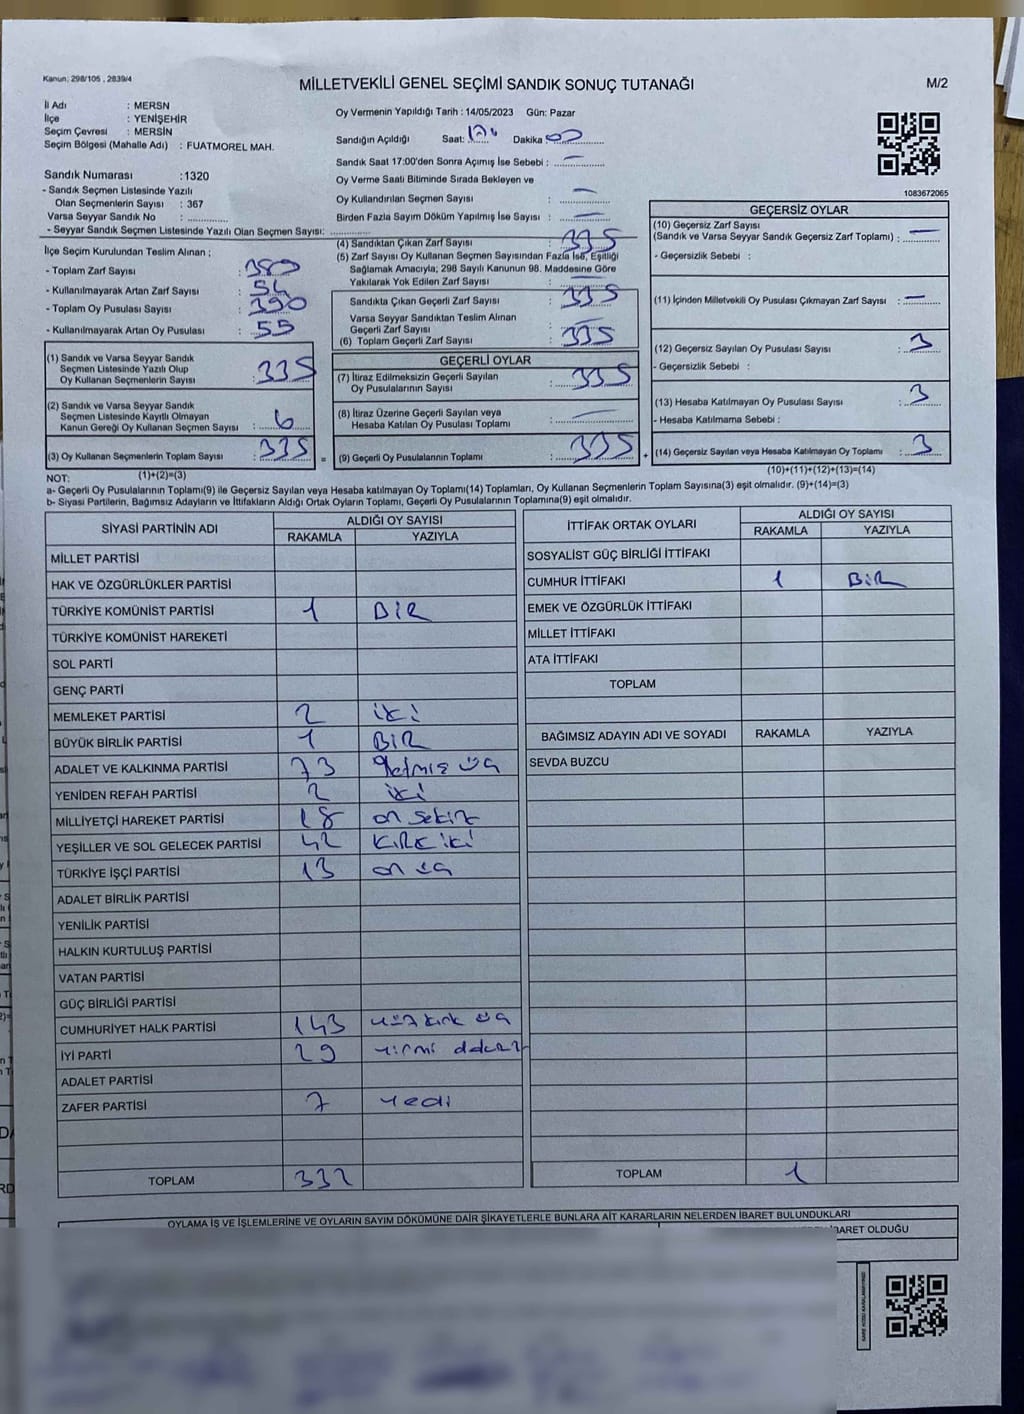 Kanun: 298/105 , 2839/4
MİLLETVEKİLİ GENEL SEÇİMİ SANDIK SONUÇ TUTANAĞI
M/2
İl Adı : MERSN
İlçe : YENİŞEHİR
Seçim Çevresi : MERSİN
Seçim Bölgesi (Mahalle Adı) : FUATMOREL MAH.
Oy Vermenin Yapıldığı Tarih : 14/05/2023 Gün: Pazar
Sandığın Açıldığı Saat: Dakika :
Sandık Saat 17:00'den Sonra Açımış İse Sebebi : —
Oy Verme Saati Bitiminde Sırada Bekleyen ve
Oy Kullandırılan Seçmen Sayısı : —
Birden Fazla Sayım Döküm Yapılmış İse Sayısı : —
1083672065
Sandık Numarası :1320
- Sandık Seçmen Listesinde Yazılı
Olan Seçmenlerin Sayısı : 367
Varsa Seyyar Sandık No :
- Seyyar Sandık Seçmen Listesinde Yazılı Olan Seçmen Sayısı:
İlçe Seçim Kurulundan Teslim Alınan ;
- Toplam Zarf Sayısı :
- Kullanılmayarak Artan Zarf Sayısı : 54
- Toplam Oy Pusulası Sayısı : 390
- Kullanılmayarak Artan Oy Pusulası : 55
(1) Sandık ve Varsa Seyyar Sandık
Seçmen Listesinde Yazılı Olup
Oy Kullanan Seçmenlerin Sayısı : 335
(2) Sandık ve Varsa Seyyar Sandık
Seçmen Listesinde Kayıtlı Olmayan
Kanun Gereği Oy Kullanan Seçmen Sayısı : 6
(3) Oy Kullanan Seçmenlerin Toplam Sayısı : 335
(1)+(2)=(3)
(4) Sandıktan Çıkan Zarf Sayısı : 335
(5) Zarf Sayısı Oy Kullanan Seçmen Sayısından Fazla İse, Eşitliği
Sağlamak Amacıyla; 298 Sayılı Kanunun 98. Maddesine Göre
Yakılarak Yok Edilen Zarf Sayısı : —
Sandıkta Çıkan Geçerli Zarf Sayısı : 335
Varsa Seyyar Sandıktan Teslim Alınan
Geçerli Zarf Sayısı : —
(6) Toplam Geçerli Zarf Sayısı : 335
GEÇERLİ OYLAR
(7) İtiraz Edilmeksizin Geçerli Sayılan
Oy Pusulalarının Sayısı : 335
(8) İtiraz Üzerine Geçerli Sayılan veya
Hesaba Katılan Oy Pusulası Toplamı : —
= (9) Geçerli Oy Pusulalarının Toplamı : 335 +
GEÇERSİZ OYLAR
(10) Geçersiz Zarf Sayısı
(Sandık ve Varsa Seyyar Sandık Geçersiz Zarf Toplamı) : —
- Geçersizlik Sebebi :
(11) İçinden Milletvekili Oy Pusulası Çıkmayan Zarf Sayısı : —
(12) Geçersiz Sayılan Oy Pusulası Sayısı : 3
- Geçersizlik Sebebi :
(13) Hesaba Katılmayan Oy Pusulası Sayısı : 3
- Hesaba Katılmama Sebebi :
(14) Geçersiz Sayılan veya Hesaba Katılmayan Oy Toplamı : 3
(10)+(11)+(12)+(13)=(14)
NOT:
a- Geçerli Oy Pusulalarının Toplamı(9) ile Geçersiz Sayılan veya Hesaba katılmayan Oy Toplamı(14) Toplamları, Oy Kullanan Seçmenlerin Toplam Sayısına(3) eşit olmalıdır. (9)+(14)=(3)
b- Siyasi Partilerin, Bağımsız Adayların ve İttifakların Aldığı Ortak Oyların Toplamı, Geçerli Oy Pusulalarının Toplamına(9) eşit olmalıdır.
SİYASİ PARTİNİN ADI ALDIĞI OY SAYISI
RAKAMLA YAZIYLA
MİLLET PARTİSİ
HAK VE ÖZGÜRLÜKLER PARTİSİ
TÜRKİYE KOMÜNİST PARTİSİ 1 BİR
TÜRKİYE KOMÜNİST HAREKETİ
SOL PARTİ
GENÇ PARTİ
MEMLEKET PARTİSİ 2 iki
BÜYÜK BİRLİK PARTİSİ 1 BİR
ADALET VE KALKINMA PARTİSİ 73 Yetmiş üç
YENİDEN REFAH PARTİSİ 2 iki
MİLLİYETÇİ HAREKET PARTİSİ 18 on sekiz
YEŞİLLER VE SOL GELECEK PARTİSİ 42 KIRK iki
TÜRKİYE İŞÇİ PARTİSİ 13 on üç
ADALET BİRLİK PARTİSİ
YENİLİK PARTİSİ
HALKIN KURTULUŞ PARTİSİ
VATAN PARTİSİ
GÜÇ BİRLİĞİ PARTİSİ
CUMHURİYET HALK PARTİSİ 143 yüz kırk üç
İYİ PARTİ 29 yirmi dokuz
ADALET PARTİSİ
ZAFER PARTİSİ 7 yedi
TOPLAM 332
İTTİFAK ORTAK OYLARI ALDIĞI OY SAYISI
RAKAMLA YAZIYLA
SOSYALİST GÜÇ BİRLİĞİ İTTİFAKI
CUMHUR İTTİFAKI 1 BİR
EMEK VE ÖZGÜRLÜK İTTİFAKI
MİLLET İTTİFAKI
ATA İTTİFAKI
TOPLAM
BAĞIMSIZ ADAYIN ADI VE SOYADI RAKAMLA YAZIYLA
SEVDA BUZCU
TOPLAM 1
OYLAMA İŞ VE İŞLEMLERİNE VE OYLARIN SAYIM DÖKÜMÜNE DAİR ŞİKAYETLERLE BUNLARA AİT KARARLARIN NELERDEN İBARET BULUNDUKLARI
İBARET OLDUĞU